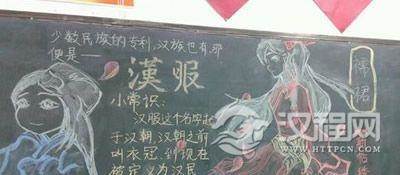 少数民族的专利,汉族也有,那
便是——
漢服
小常识:
汉服这个名字起
于汉朝,汉朝之前
叫衣冠,到现在
被定义为汉民
裙
汉程网
HTTPCN.COM